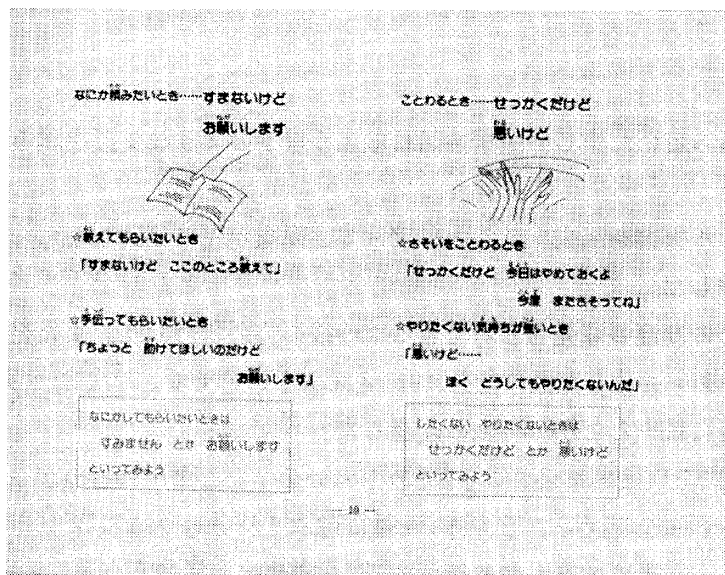 なにか頼みたいとき……すまないけど
お願いします
☆教えてもらいたいとき
「すまないけど ここのところ教えて」
☆手伝ってもらいたいとき
「ちょっと 助けてほしいのだけど
お願いします」
なにかしてもらいたいときは
すみません とか お願いします
といってみよう
ことわるとき……せっかくだけど
悪いけど
☆さそいをことわるとき
「せっかくだけど 今日はやめておくよ
今度 またさそってね」
☆やりたくない気持ちが強いとき
「悪いけど……
ぼく どうしてもやりたくないんだ」
したくない やりたくないときは
せっかくだけど とか 悪いけど
といってみよう
— 10 —